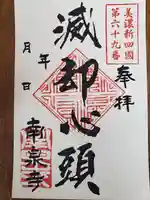 奉拝
美濃新四國
第六十九番
滅却心頭
年
月
日
南泉寺